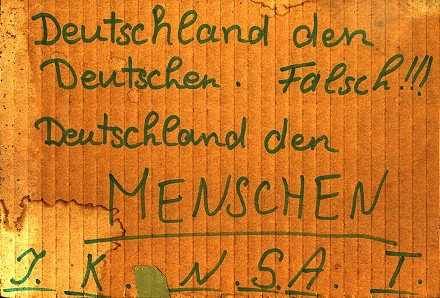 Deutschland den
Deutschen. Falsch!!!
Deutschland den
MENSCHEN
J. K. N.S.A. I.